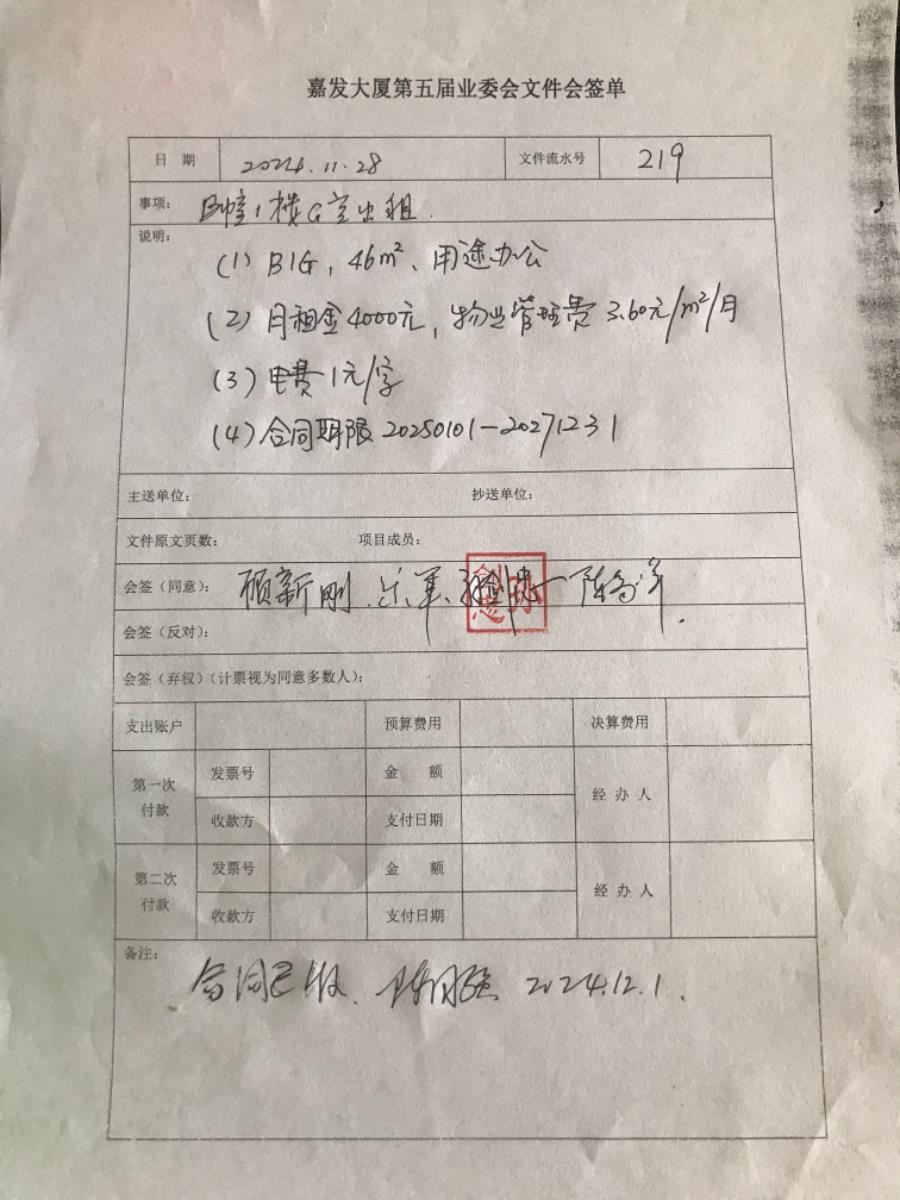 嘉发大厦第五届业委会文件会签单
日 期 2024.11.28 文件流水号 219
事项: B幢1楼G室出租.
说明:
(1) B1G, 46m²、用途办公
(2) 月租金4000元, 物业管理费 3.60元/m²/月
(3) 电费1元/字
(4) 合同期限 20250101-20271231
主送单位: 抄送单位:
文件原文页数: 项目成员:
会签(同意): 顾新刚、
会签(反对):
会签(弃权)(计票视为同意多数人):
支出账户 预算费用 决算费用
第一次付款 发票号 金 额 经 办 人
收款方 支付日期
第二次付款 发票号 金 额 经 办 人
收款方 支付日期
备注:
合同已收. 2024.12.1.